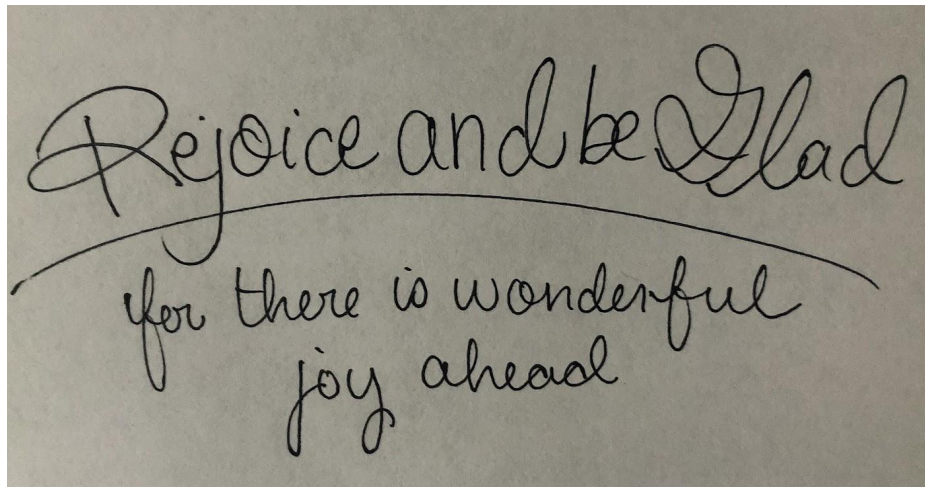 Rejoice and be Glad
for there is wonderful
joy ahead